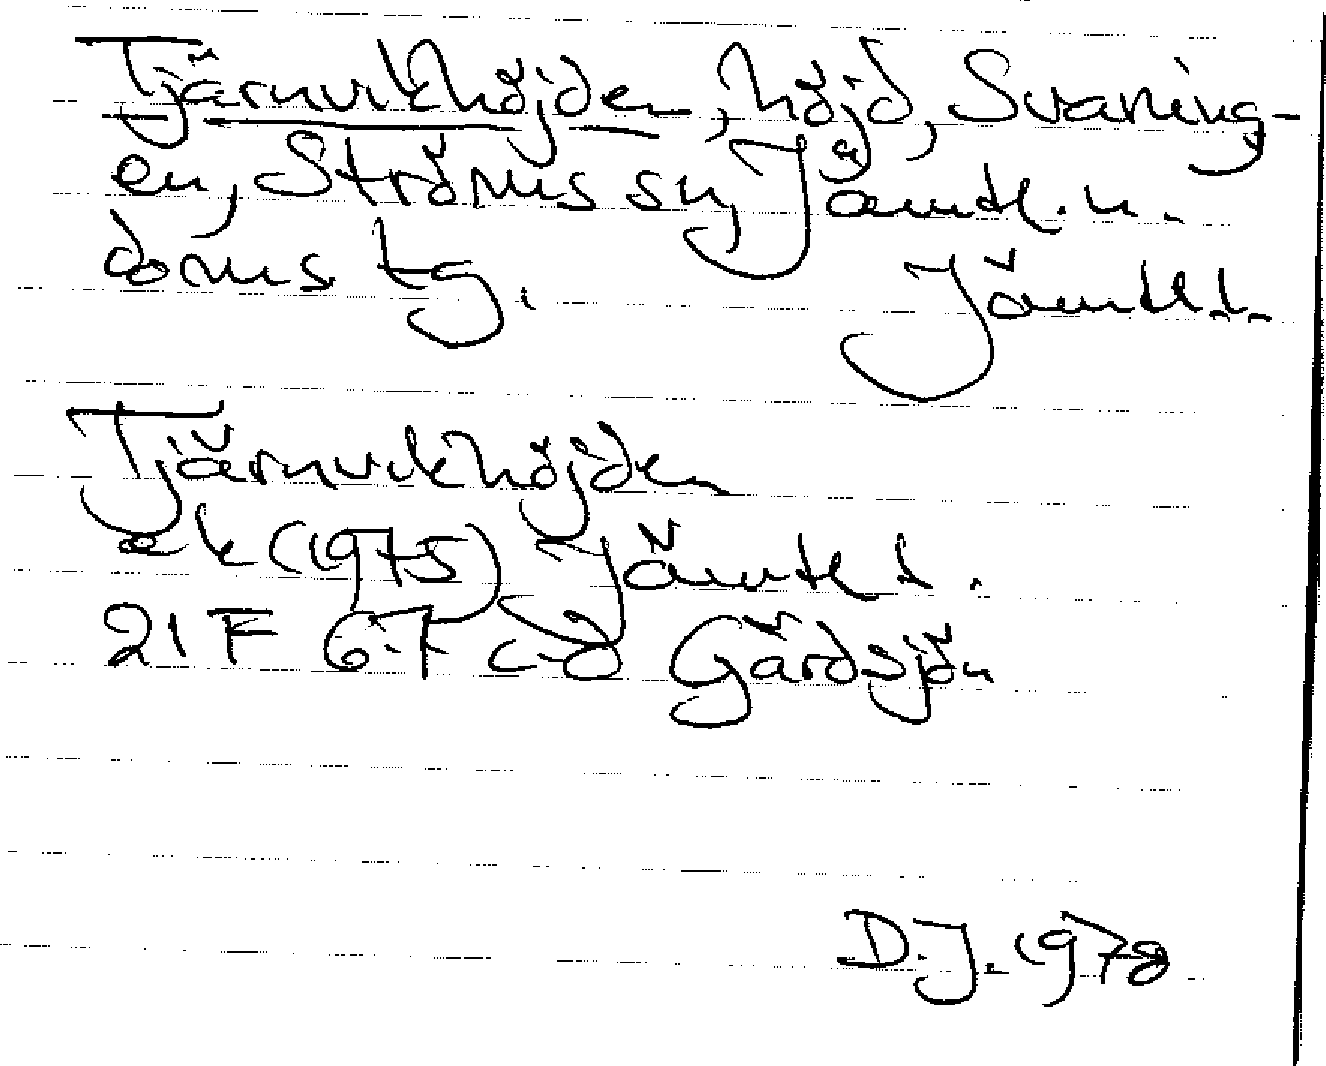 Tjärnvikhöjden, höjd, Svaning-
en, Ströms sn, Jämtl. n.
doms. tg. Jämtl. l.
Tjärnvikhöjden
ek (1975) Jämtl l.
21 F 6-7 c-d Gårdsjön
D.J. 1978